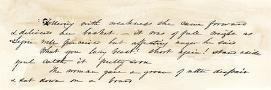 "Trembling with weakness she came forward
& delivered her basket, – it was of full weight as
Legree well perceived but affecting anger he said
What you lazy beast! short again! stand aside
you'll catch it pretty soon
The woman gave a groan of utter despair
& sat down on a board